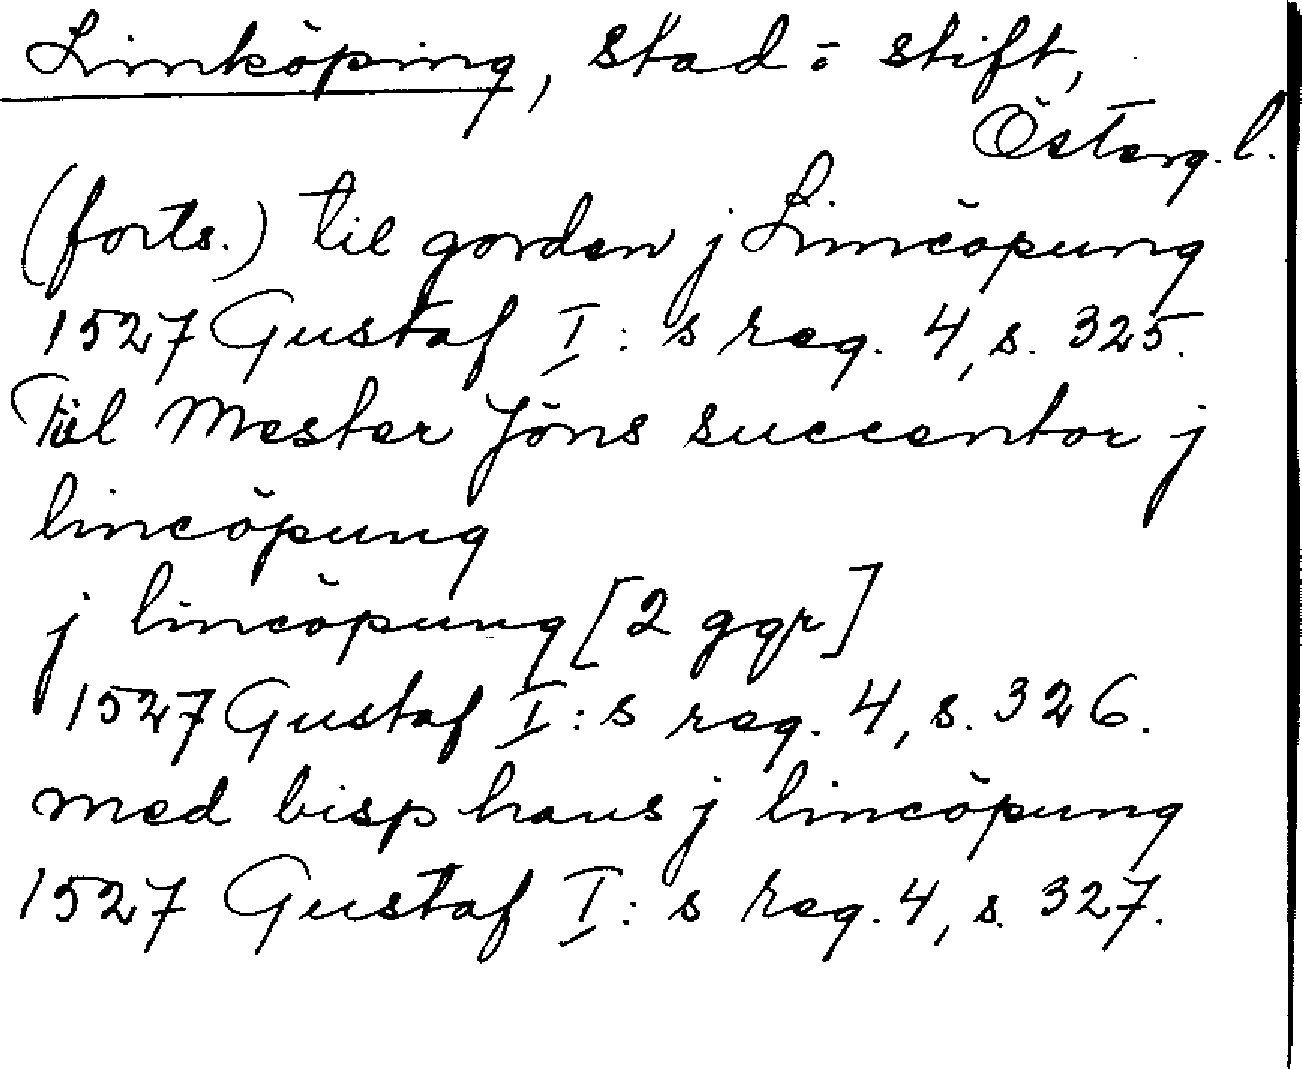 Linköping, stad o stift,
Österg. l.
(forts.) til gorden j Lincöpung
1527 Gustaf I:s reg. 4, s. 325.
Tiil Mester Jöns succentor j
lincöpung
j lincöpung [2 ggr]
1527 Gustaf I:s reg. 4, s. 326.
med bisp hans j lincöpung
1527 Gustaf I:s reg. 4, s. 327.